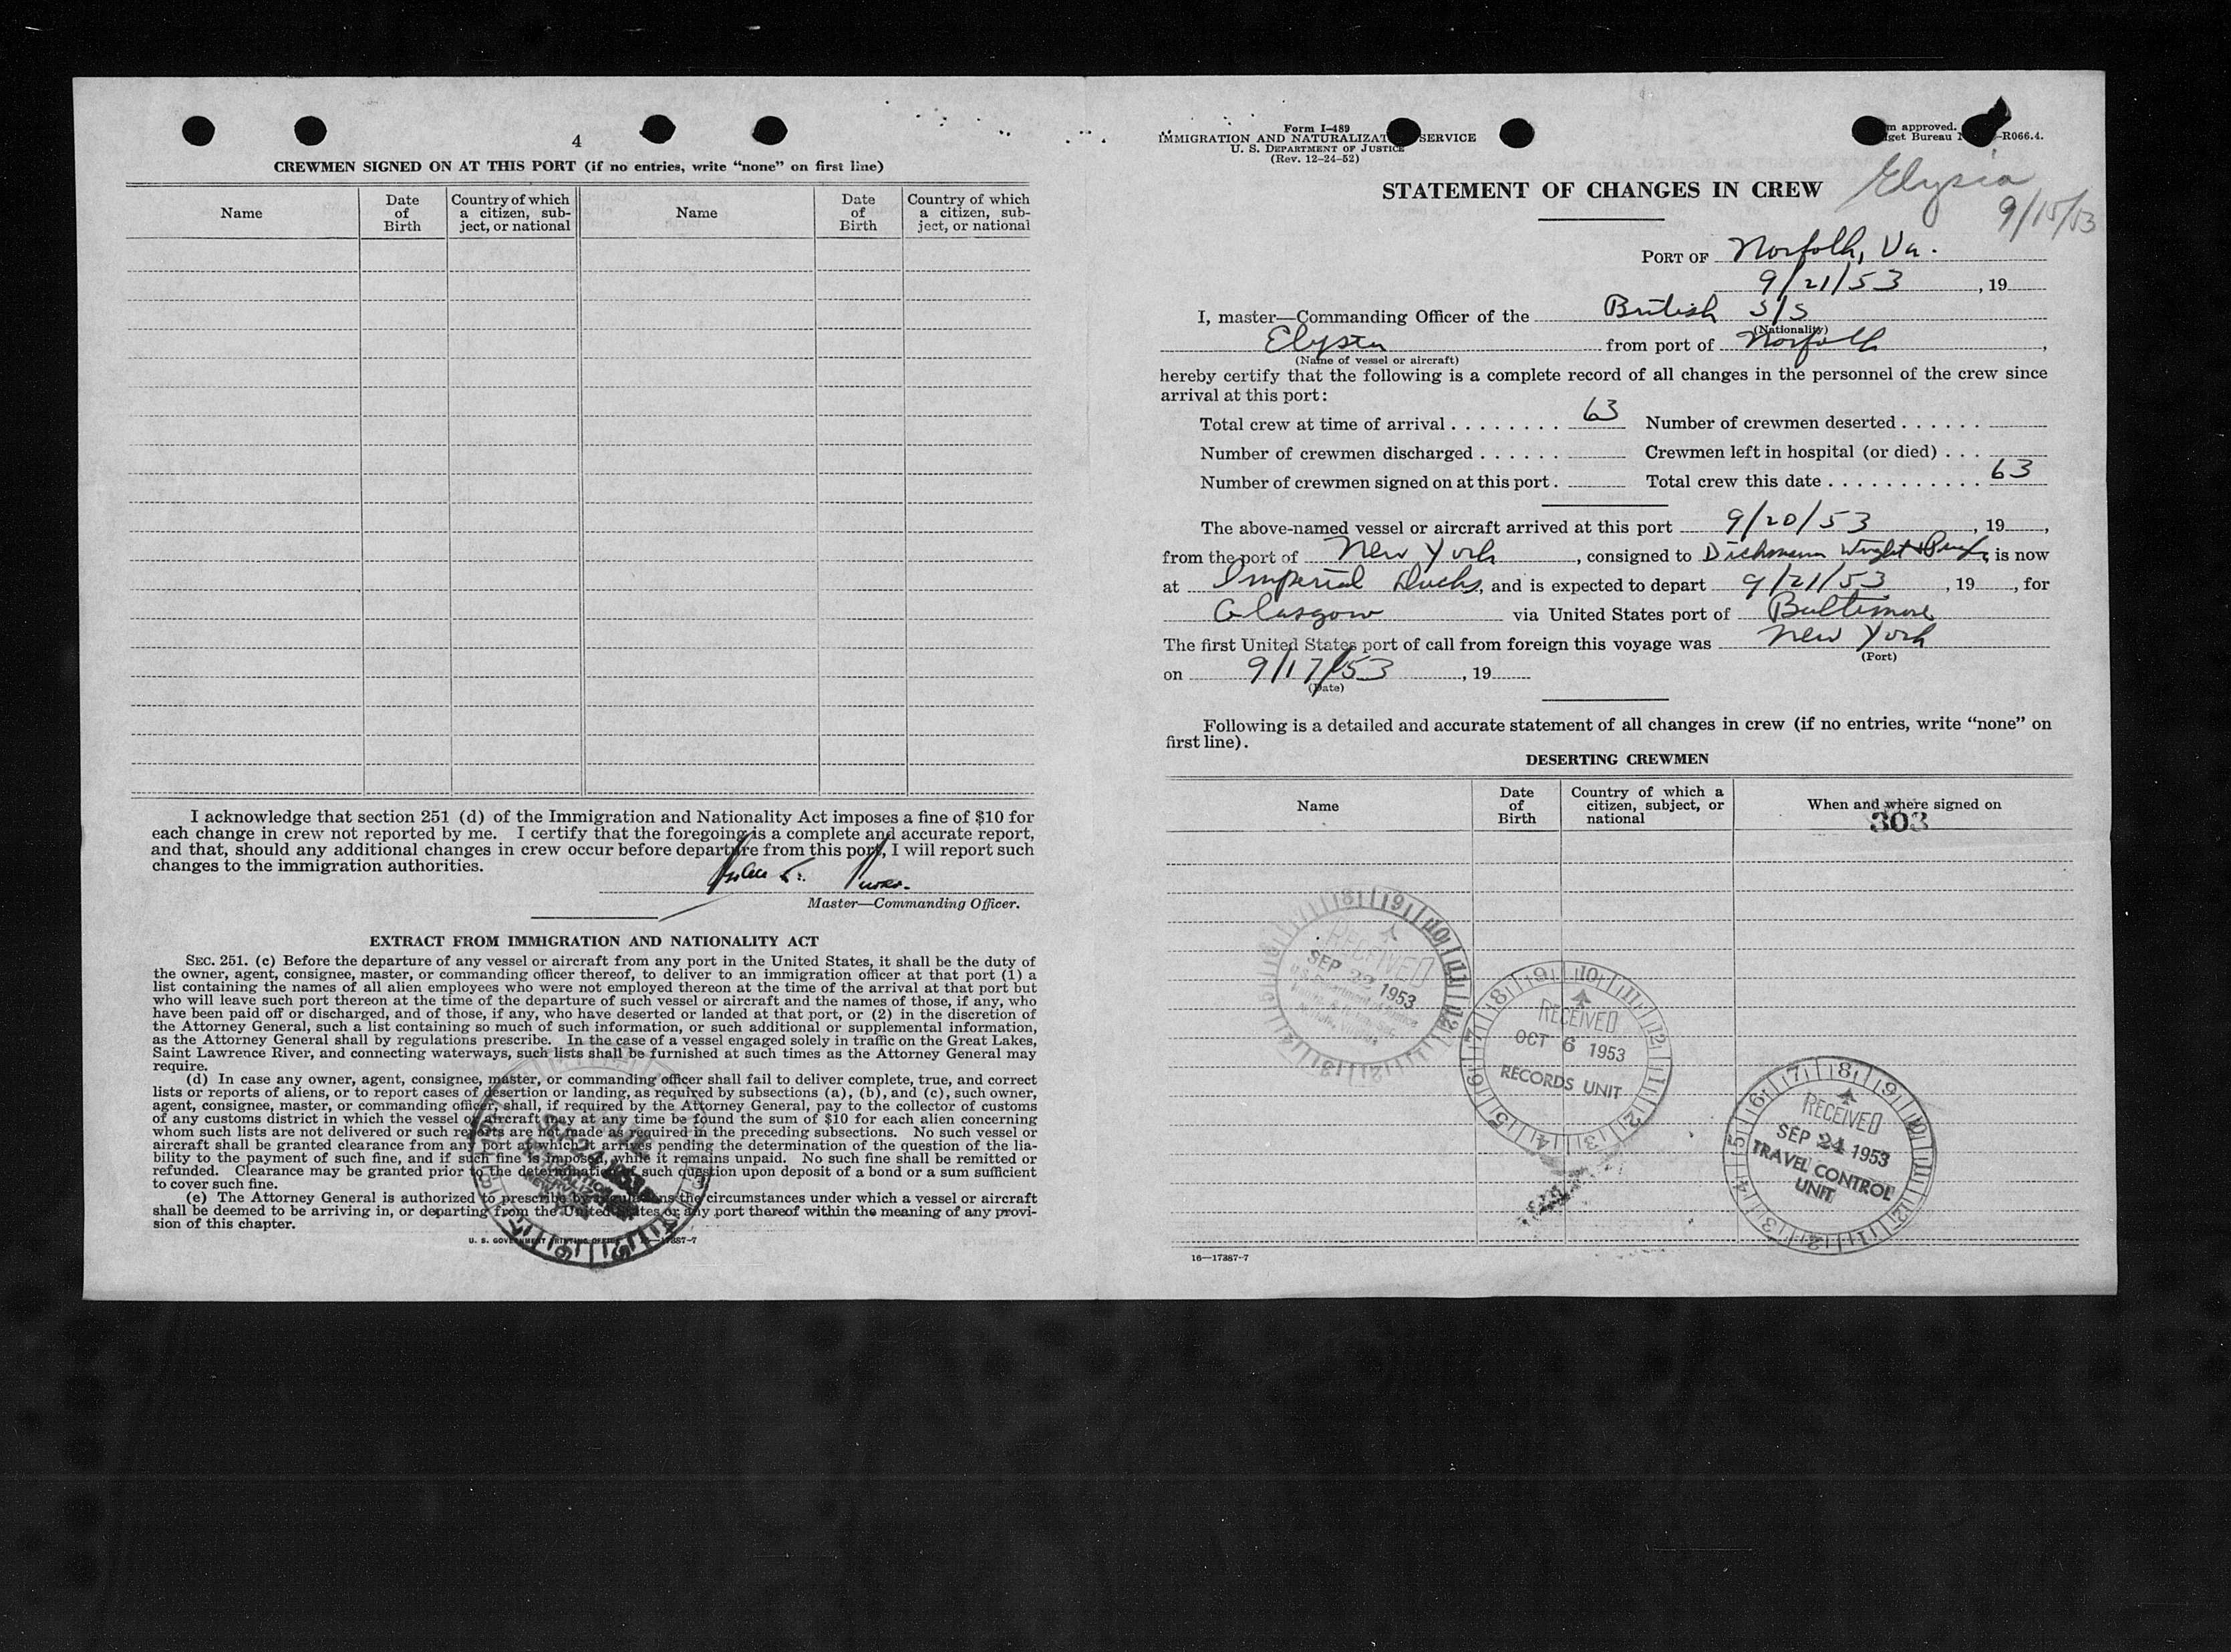 4
CREWMEN SIGNED ON AT THIS PORT (if no entries, write “none” on first line)
Name
Date
of
Birth
Country of which
a citizen, sub-
ject, or national
Name
Date
of
Birth
Country of which
a citizen, sub-
ject, or national
I acknowledge that section 251 (d) of the Immigration and Nationality Act imposes a fine of $10 for
each change in crew not reported by me. I certify that the foregoing is a complete and accurate report,
and that, should any additional changes in crew occur before departure from this port, I will report such
changes to the immigration authorities.
Master—Commanding Officer.
EXTRACT FROM IMMIGRATION AND NATIONALITY ACT
SEC. 251. (c) Before the departure of any vessel or aircraft from any port in the United States, it shall be the duty of
the owner, agent, consignee, master, or commanding officer thereof, to deliver to an immigration officer at that port (1) a
list containing the names of all alien employees who were not employed thereon at the time of the arrival at that port but
who will leave such port thereon at the time of the departure of such vessel or aircraft and the names of those, if any, who
have been paid off or discharged, and of those, if any, who have deserted or landed at that port, or (2) in the discretion of
the Attorney General, such a list containing so much of such information, or such additional or supplemental information,
as the Attorney General shall by regulations prescribe. In the case of a vessel engaged solely in traffic on the Great Lakes,
Saint Lawrence River, and connecting waterways, such lists shall be furnished at such times as the Attorney General may
require.
(d) In case any owner, agent, consignee, master, or commanding officer shall fail to deliver complete, true, and correct
lists or reports of aliens, or to report cases of desertion or landing, as required by subsections (a), (b), and (c), such owner,
agent, consignee, master, or commanding officer, shall, if required by the Attorney General, pay to the collector of customs
of any customs district in which the vessel or aircraft may at any time be found the sum of $10 for each alien concerning
whom such lists are not delivered or such reports are not made as required in the preceding subsections. No such vessel or
aircraft shall be granted clearance from any port at which it arrives pending the determination of the question of the lia-
bility to the payment of such fine, and if such fine is imposed, while it remains unpaid. No such fine shall be remitted or
refunded. Clearance may be granted prior to the determination of such question upon deposit of a bond or a sum sufficient
to cover such fine.
(e) The Attorney General is authorized to prescribe by regulations the circumstances under which a vessel or aircraft
shall be deemed to be arriving in, or departing from the United States or any port thereof within the meaning of any provi-
sion of this chapter.
U. S. GOVERNMENT PRINTING OFFICE 16—17387-7
Form I-489
IMMIGRATION AND NATURALIZAT SERVICE
U. S. DEPARTMENT OF JUSTICE
(Rev. 12-24-52)
m approved.
get Bureau -R066.4.
STATEMENT OF CHANGES IN CREW
Elysia
9/15/53
PORT OF Norfolk, Va.
9/21/53, 19
I, master—Commanding Officer of the British S/S
(Nationality)
Elysia from port of Norfolk,
(Name of vessel or aircraft)
hereby certify that the following is a complete record of all changes in the personnel of the crew since
arrival at this port:
Total crew at time of arrival . . . . . . . . 63 Number of crewmen deserted . . . . . .
Number of crewmen discharged . . . . . . Crewmen left in hospital (or died) . . .
Number of crewmen signed on at this port . Total crew this date . . . . . . . . . . . 63
The above-named vessel or aircraft arrived at this port 9/20/53, 19,
from the port of New York, consigned to Dichmann Wright & Pugh, is now
at Imperial Docks, and is expected to depart 9/21/53, 19, for
Glasgow via United States port of Baltimore
The first United States port of call from foreign this voyage was New York
(Port)
on 9/17/53, 19
(Date)
Following is a detailed and accurate statement of all changes in crew (if no entries, write “none” on
first line).
DESERTING CREWMEN
Name
Date
of
Birth
Country of which a
citizen, subject, or
national
When and where signed on
303
RECEIVED
SEP 22 1953
U.S. Department of Justice
RECEIVED
OCT 6 1953
RECORDS UNIT
RECEIVED
SEP 24 1953
TRAVEL CONTROL
UNIT
16—17387-7